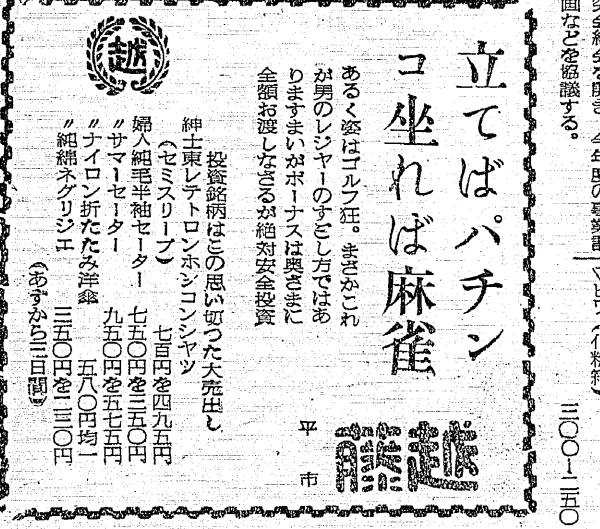 面などを協議する。
三〇〇―二五〇
立てばパチン
コ坐れば麻雀
あるく姿はゴルフ狂。まさかこれ
が男のレジャーのすごし方ではあ
りますまいがボーナスは奥さまに
全額お渡しなさるが絶対安全投資
投資銘柄はこの思い切つた大売出し
紳士東レテトロンホンコンシヤツ
(セミスリーブ) 七百円を四九五円
婦人純毛半袖セーター 七五〇円を三五〇円
〃サマーセーター 九五〇円を五七五円
〃ナイロン折たたみ洋傘 五八〇円均一
〃純綿ネグリジエ 三五〇円を二三〇円
(あすから三日間)
越
平市